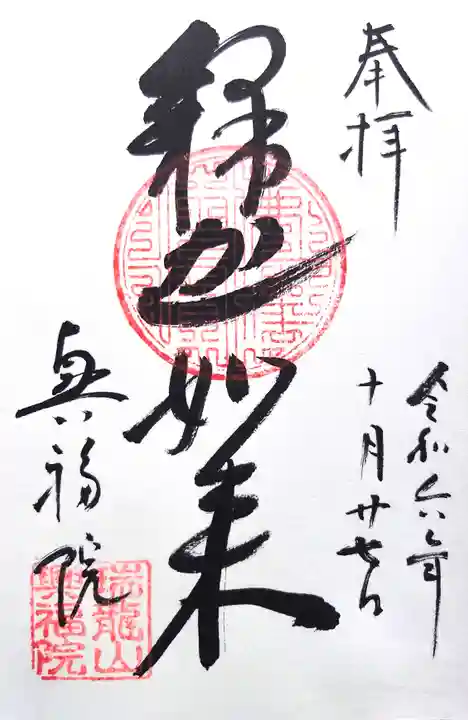 奉拝
令和六年
十月廿七日
釋迦如来
興福院
瑞龍山
興福院